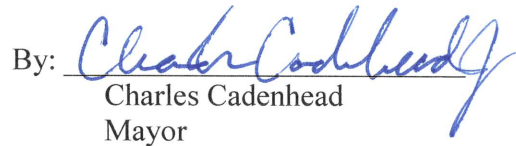 By: Charles Cadenhead Jr
Charles Cadenhead
Mayor